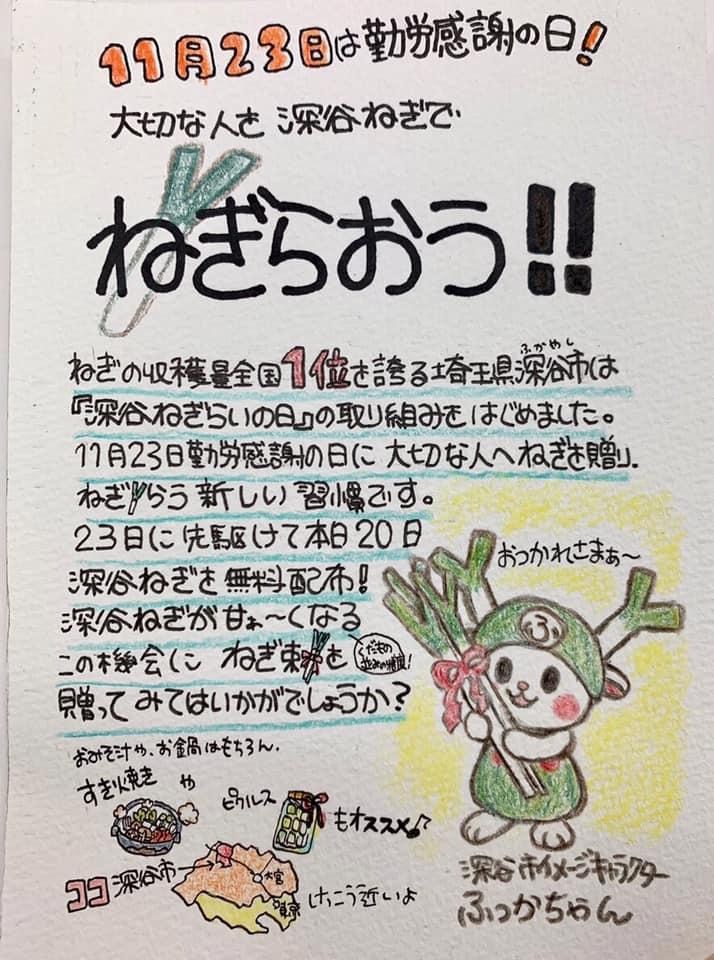 11月23日は勤労感謝の日!
大切な人を 深谷ねぎで
ねぎらおう!!
ねぎの収穫量全国1位を誇る埼玉県深谷市は
ふかやし
『深谷ねぎらいの日』の取り組みをはじめました。
11月23日勤労感謝の日に 大切な人へねぎを贈り、
ねぎらう 新しい 習慣です。
23日に先駆けて本日20日
深谷ねぎを 無料配布!
深谷ねぎが 甘ぁ〜くなる
くだもの並みの糖度!
この機会に ねぎ束を
贈ってみてはいかがでしょうか?
おつかれさまぁ〜
ふ
おみそ汁や、お鍋はもちろん、
すき焼き や
ピクルス もオススメ♪
ココ 深谷市
大宮
東京
けっこう近いよ
深谷市イメージキャラクター
ふっかちゃん